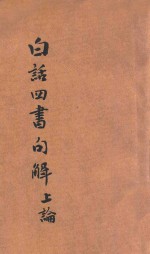 白話四書句解上論